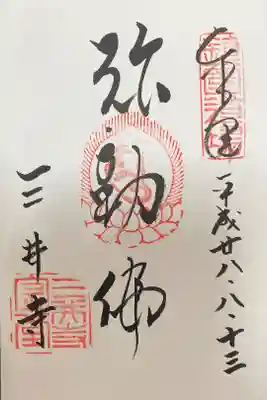 奉拝
平成廿八・八・十三
弥勒佛
三井寺